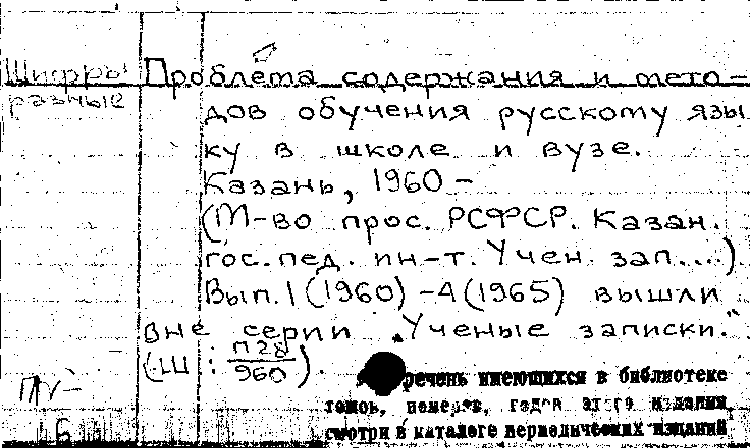 Шифры Проблема содержания и мето-
разные дов обучения русскому язы
ку в школе и вузе.
Казань, 1960 -
(М-во прос. РСФСР. Казан.
гос. пед. ин-т. Учен. зап....)
Вып. 1 (1960) - 4 (1965) вышли
вне серии „Ученые записки."
(Ш: П28/960).
Перечень имеющихся в библиотеке
томов, номеров, годов этого издания
смотри в каталоге периодических изданий